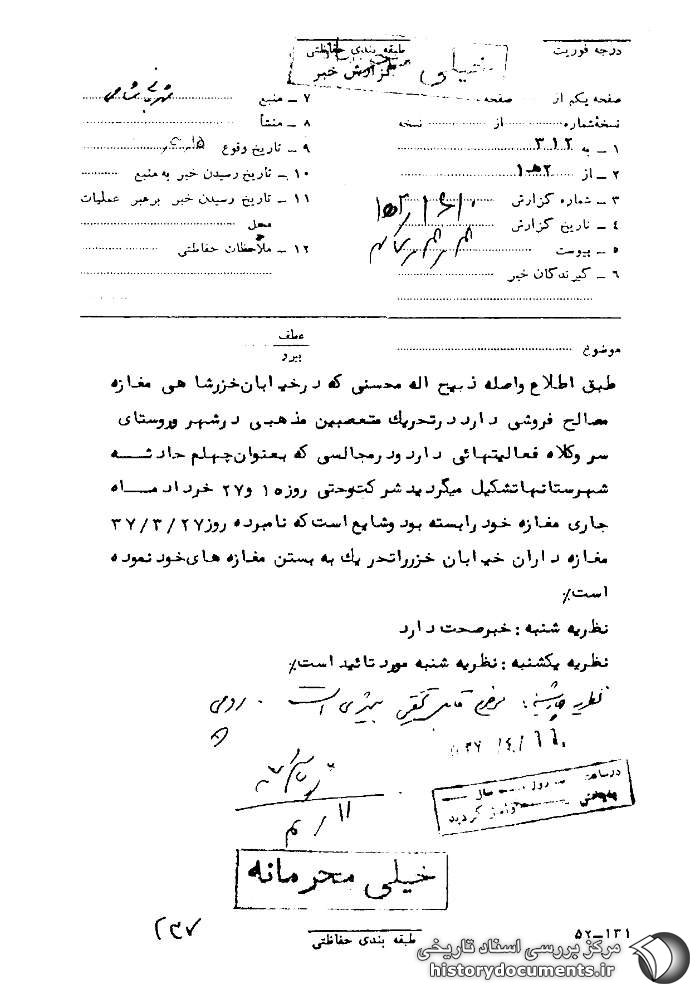 درجه فوریت
طبقه بندی حفاظتی
گزارش خبر
صفحه یکم از صفحه
نسخه شماره از نسخه
۱ ـ به ۳۱۲
۲ ـ از ۲ ه‍ ۱
۳ ـ شماره گزارش
۴ ـ تاریخ گزارش
۵ ـ پیوست
۶ ـ گیرندگان خبر
۷ ـ منبع
۸ ـ منشأ
۹ ـ تاریخ وقوع
۱۰ ـ تاریخ رسیدن خبر به منبع
۱۱ ـ تاریخ رسیدن خبر برهبر عملیات
محل
۱۲ ـ ملاحظات حفاظتی
موضوع
عطف
پیرو
طبق اطلاع واصله ذبیح اله محسنی که در خیابان خزرشاهی مغازه
مصالح فروشی دارد در تحریك متعصبین مذهبی در شهر و روستای
سروکلاه فعالیتهائی دارد و در مجالسی که بعنوان چهلم حادثه
شهرستانها تشکیل میگردید شرکت و حتی روز ۱۵ و ۲۷ خرداد ماه
جاری مغازه خود را بسته بود و شایع است که نامبرده روز ۳۷/۳/۲۷
مغازه داران خیابان خزر را تحریك به بستن مغازه های خود نموده
است٪
نظریه شنبه : خبر صحت دارد
نظریه یکشنبه : نظریه شنبه مورد تائید است٪
خیلی محرمانه
۲۴۷
طبقه بندی حفاظتی
۵۲ـ۱۳۱
مرکز بررسی اسناد تاریخی
historydocuments.ir